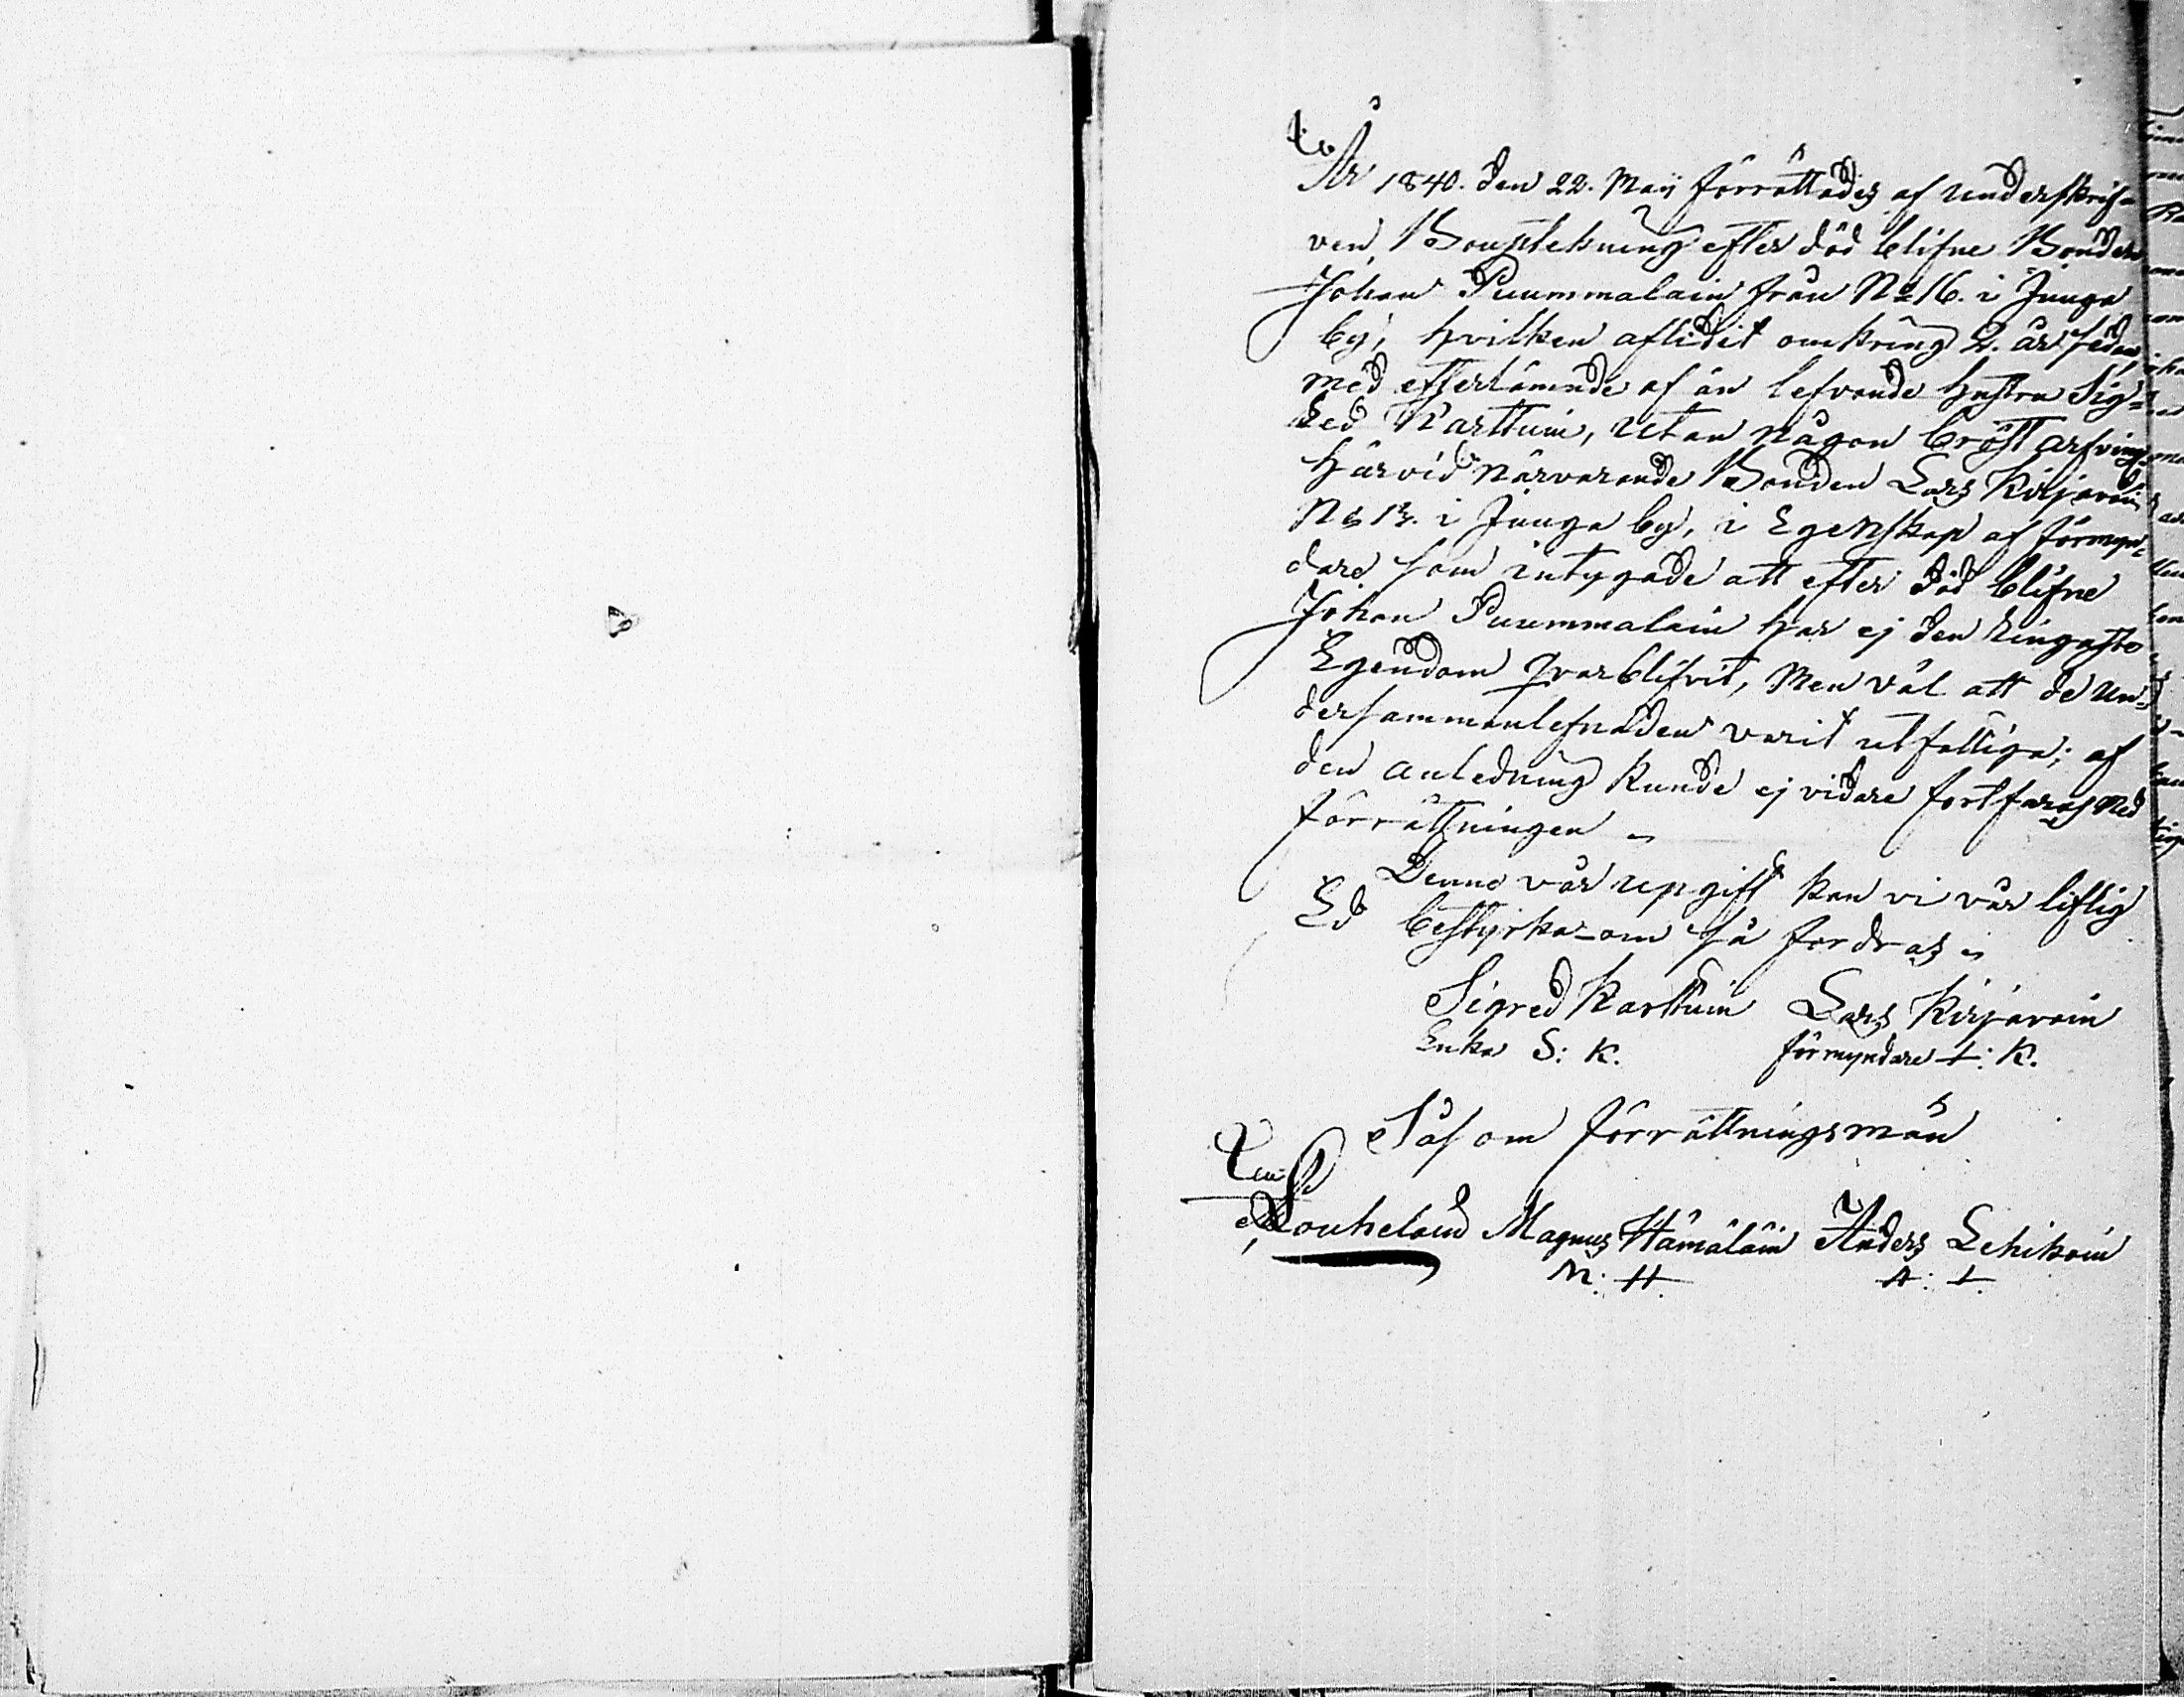 År 1840. den 22. Maij förrättades af underskrif-
ven, Bouptekning efter död blifne Bonden
Johan Puummalain från No 16. i Junga
by, hvilken aflidit omkring 2. år sedan,
med efterlämnde af än lefvande hustru Sig=
red Karttuin, utan någon bröst arfving.
Härvid Närvarande Bonden Lars Kirjavain
No 13. i Junga by, i Egenskap af förmyn=
dare som intygade att efter död blifne
Johan Puummalain har ej den ringaste
Egendom qvarblifvit, Men väl att de un=
dersammanlefnaden varit utfattiga; af
den anledning kunde ej vidare fortfaras med
förrättningen
Denna vår upgift kan vi vår liflig
Ed bestyrka om så fordras
Sigred Karttuin Lars Kirjavain
Enka S: K. förmyndare L: K.
Såsom förrättningsmän
Magnus Hämäläin Anders Lehikoin
M: H. A: L.